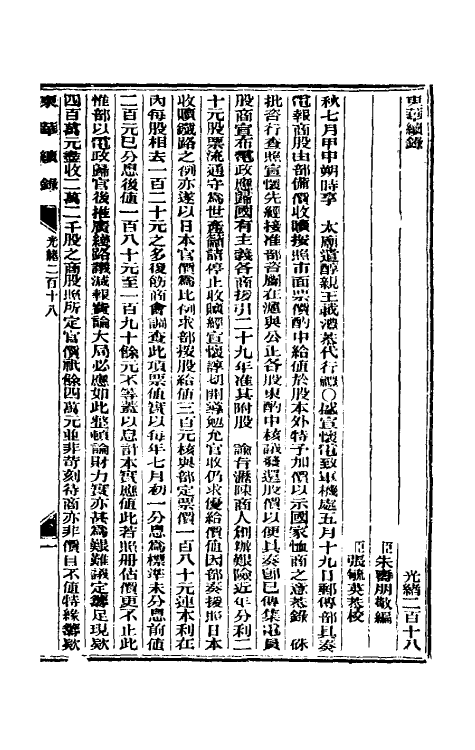 東華續錄
光緒二百十八
臣朱壽朋敬編
臣張毓英恭校
秋七月甲申朔時享　太廟遣醇親王載灃恭代行禮○盛宣懷電致軍機處五月十九日郵傳部具奏
電報商股由部備價收贖按照市面票價酌中給値於股本外特予加價以示國家恤商之意恭錄　硃
批咨行查照宣懷先經接准部咨關在滬與公正各股東酌中核議發還股價以便具奏卽已傳集電員
股商宣布電政應歸國有主義各商援引二十九年准其附股　諭旨瀝陳商人創辦艱險近年分利二
十元股票流通守爲世產籲請停止收贖經宣懷諄切開導勉允官收仍求優給價値因部奏援照日本
收贖鐵路之例亦遂以日本官價爲比例求部按股給値三百元核與部定票價一百八十元連本利在
內每股相去一百二十元之多復飭商會調查此項票値實以每年七月初一分息爲標準未分息前値
二百元已分息後値一百八十元至一百九十餘元不等蓋以息計本實應値此若照册估價更不止此
惟部以電政歸官後推廣綫路議減報費論大局必應如此整頓論財力實亦甚爲艱難議定籌足現欵
四百萬元盡收二萬二千股之商股照所定官價祇餘四萬元並非苛刻待商亦非價目不値特緣籌欵
東華續錄
光緒二百十八
一